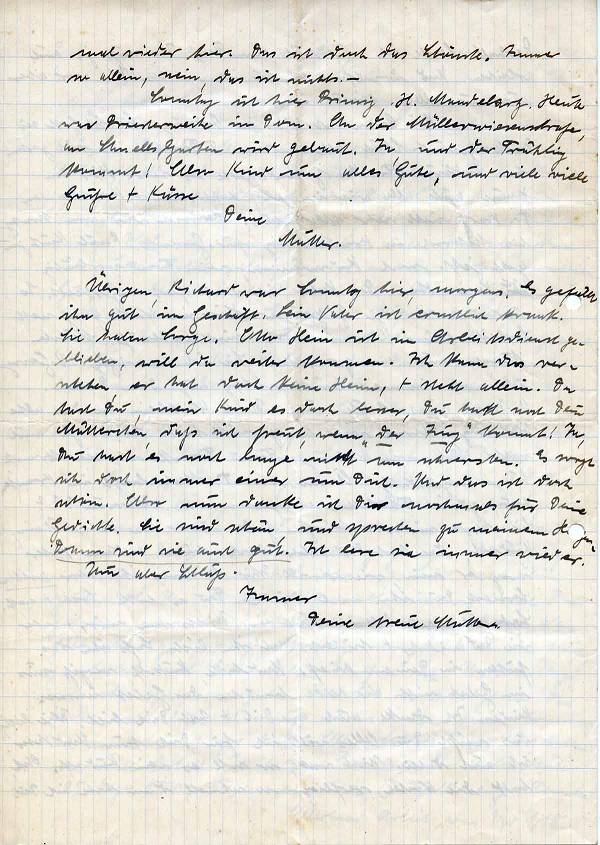 mal wieder hier. Das ist doch das Schönste. Immer
so allein, nein, das ist nichts.-
Sonntag ist hier Primiz, H. Mandelarz. Heute
war Priesterweihe im Dom. An der Müllerwiesenstrasse,
an Garten wird gebaut. Ja und der Frühling
kommt! Also Kind nun alles Gute, und viele viele
Grüße + Küsse
Deine
Mutter.
Übrigen Richard war Sonntag hier, morgens. Es gefällt
ihm gut im Geschäft. Sein Vater ist ernstlich krank.
Sie haben Sorge. Otto Hein ist im Arbeitsdienst ge-
blieben, will da weiter kommen. Ich kann das ver-
stehen, er hat doch keine Heim, + steht allein. Da
hast Du, mein Kind es doch besser, Du hast noch Dein
Mütterchen, daß sich freut, wenn "der Zug" kommt! Ja,
Du hast es noch lange nicht am schwersten. Es sorgt
sich doch immer einer um Dich. Und das ist doch
schön. Also nun danke ich Dir nochmals für Deine
Gedichte. Sie sind schön, und sprechen zu meinem Herzen.
Darum sind sie auch gut. Ich lese sie immer wieder.
Nun aber Schluß.
Immer
Deine treue Mutter.